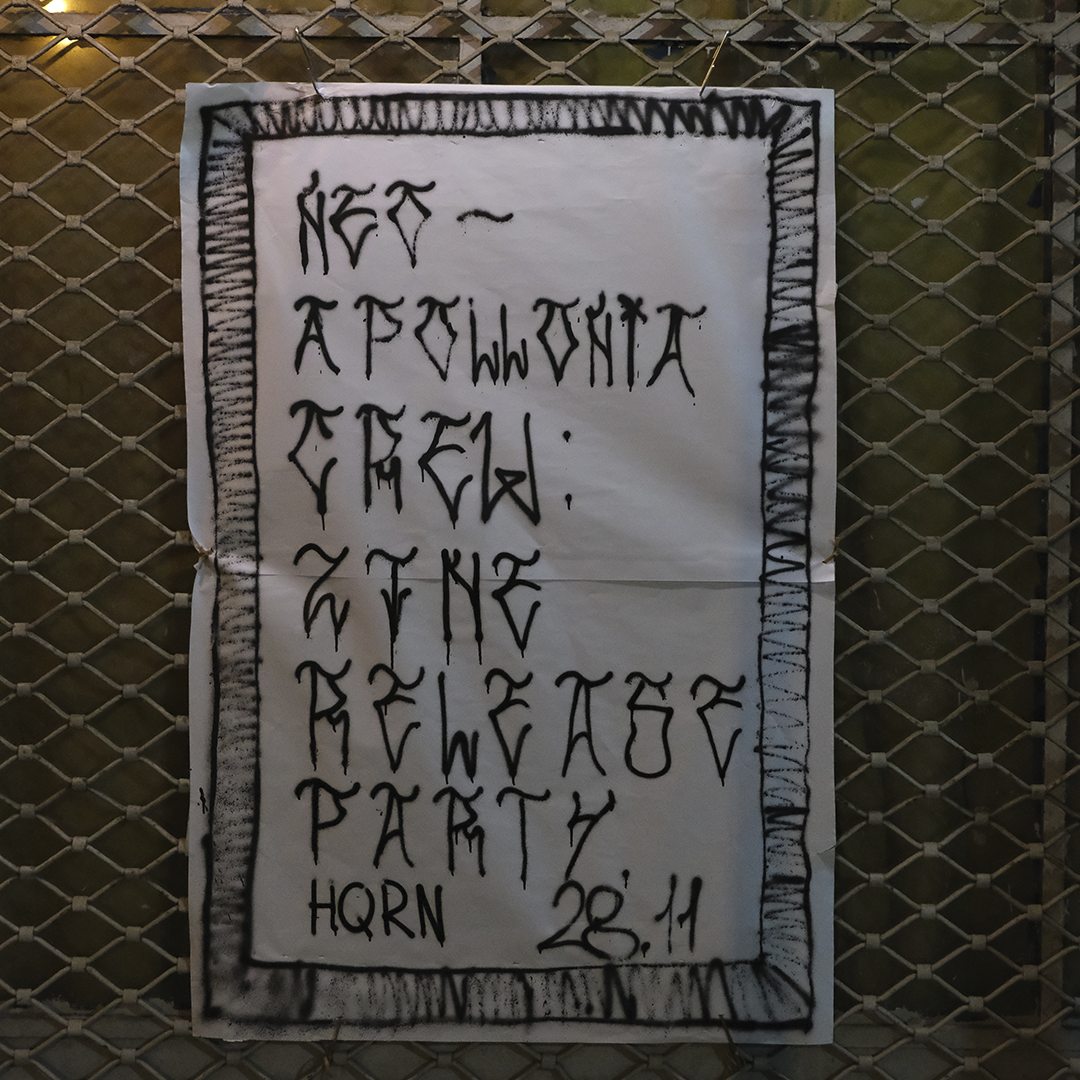 NEO~
APOLLONIA
CREW:
ZINE
RELEASE
PARTY
HQRN 28.11